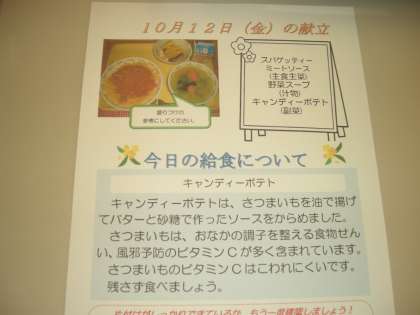 10月12日（金）の献立
スパゲッティー
ミートソース
（主食主菜）
野菜スープ
（汁物）
キャンディーポテト
（副菜）
盛りつけの
参考にしてください。
今日の給食について
キャンディーポテト
キャンディーポテトは、さつまいもを油で揚げ
てバターと砂糖で作ったソースをからめました。
さつまいもは、おなかの調子を整える食物せん
い、風邪予防のビタミンCが多く含まれています。
さつまいものビタミンCはこわれにくいです。
残さず食べましょう。
片付けがしっかりできているか、もう一度確認しましょう！